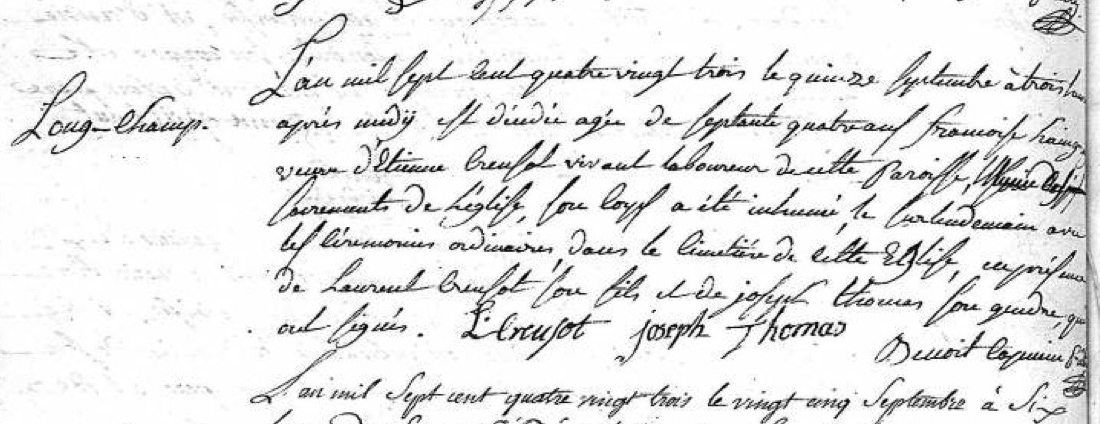 L'an mil sept cent quatre vingt trois le quinze septembre à trois
Long-Champ.
après midÿ est décédée agée de septante quatre ans francoise
veuve d'Etienne Creusot vivant laboureur de cette Paroisse, Munie des
sacrements de L'église, son corps a été inhumé, le surlendemain avec
les cérémonies ordinaires, dans le cimetiére de cette Eglise, en présence
de Laurent Creusot son fils et de joseph thomas son gendre, qui
ont signés. L. Creusot joseph Thomas
Benoit
L'an mil Sept cent quatre vingt trois le vingt cinq Septembre à Six